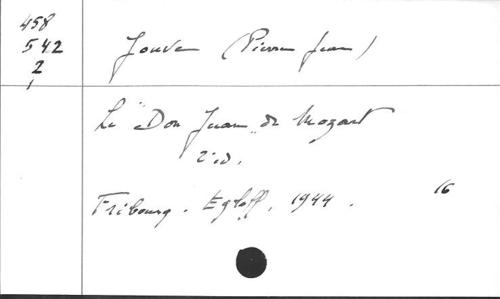 458
542
2
Jouve (Pierre Jean)
Le "Don Juan" de Mozart
2e éd.
Fribourg. Egloff, 1944.
16